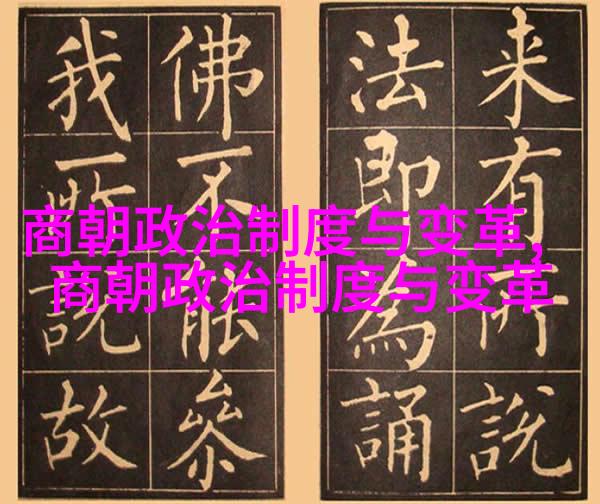 商朝政治制度与变革,
商朝政治制度与变革
来有所說
法即為誦
佛不能叅
我所說故